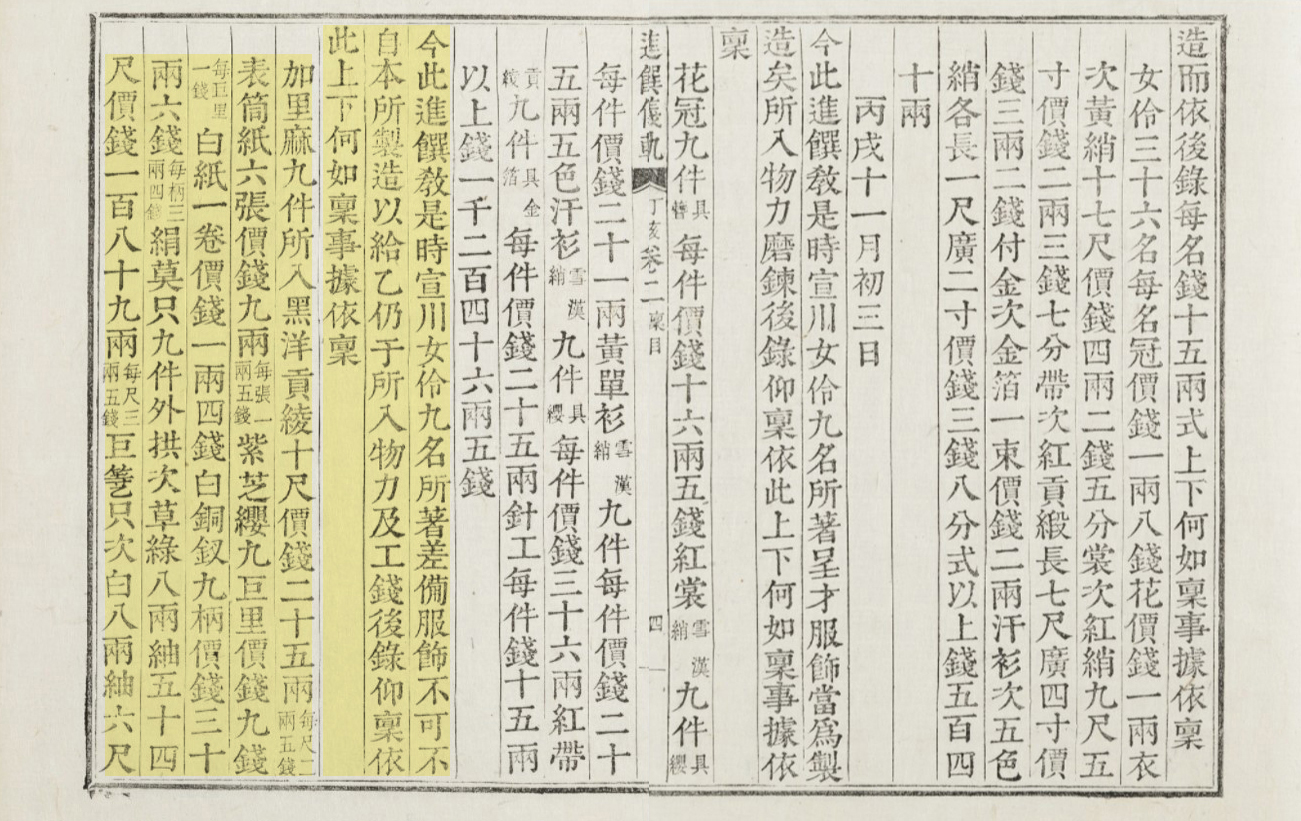 造而依後錄每名錢十五兩式上下何如稟事據依稟
女伶三十六名每名冠價錢一兩八錢花價錢一兩衣
次黃綃十七尺價錢四兩二錢五分裳次紅綃九尺五
寸價錢二兩三錢七分帶次紅貢緞長七尺廣四寸價
錢三兩二錢付金次金箔一束價錢二兩汗衫次五色
綃各長一尺廣二寸價錢三錢八分式以上錢五百四
十兩
丙戌十一月初三日
今此進饌敎是時宣川女伶九名所著呈才服飾當爲製
造矣所入物力磨鍊後錄仰稟依此上下何如稟事據依
稟
花冠九件具簪每件價錢十六兩五錢紅裳雪漢綃九件具纓
進饌儀軌 丁亥 卷二 稟目 四
每件價錢二十一兩黃單衫雪漢綃九件每件價錢二十
五兩五色汗衫雪漢綃九件具纓每件價錢三十六兩紅帶
貢綾九件具金箔每件價錢二十五兩針工每件錢十五兩
以上錢一千二百四十六兩五錢
今此進饌敎是時宣川女伶九名所著差備服飾不可不
自本所製造以給乙仍于所入物力及工錢後錄仰稟依
此上下何如稟事據依稟
加里麻九件所入黑洋貢綾十尺價錢二十五兩每尺二兩五錢
表筒紙六張價錢九兩每張一兩五錢紫芝纓九巨里價錢九錢
每巨里一錢白紙一卷價錢一兩四錢白銅釵九柄價錢三十
兩六錢每柄三兩四錢絹莫只九件外拱次草綠八兩紬五十四
尺價錢一百八十九兩每尺三兩五錢巨等乭只次白八兩紬六尺